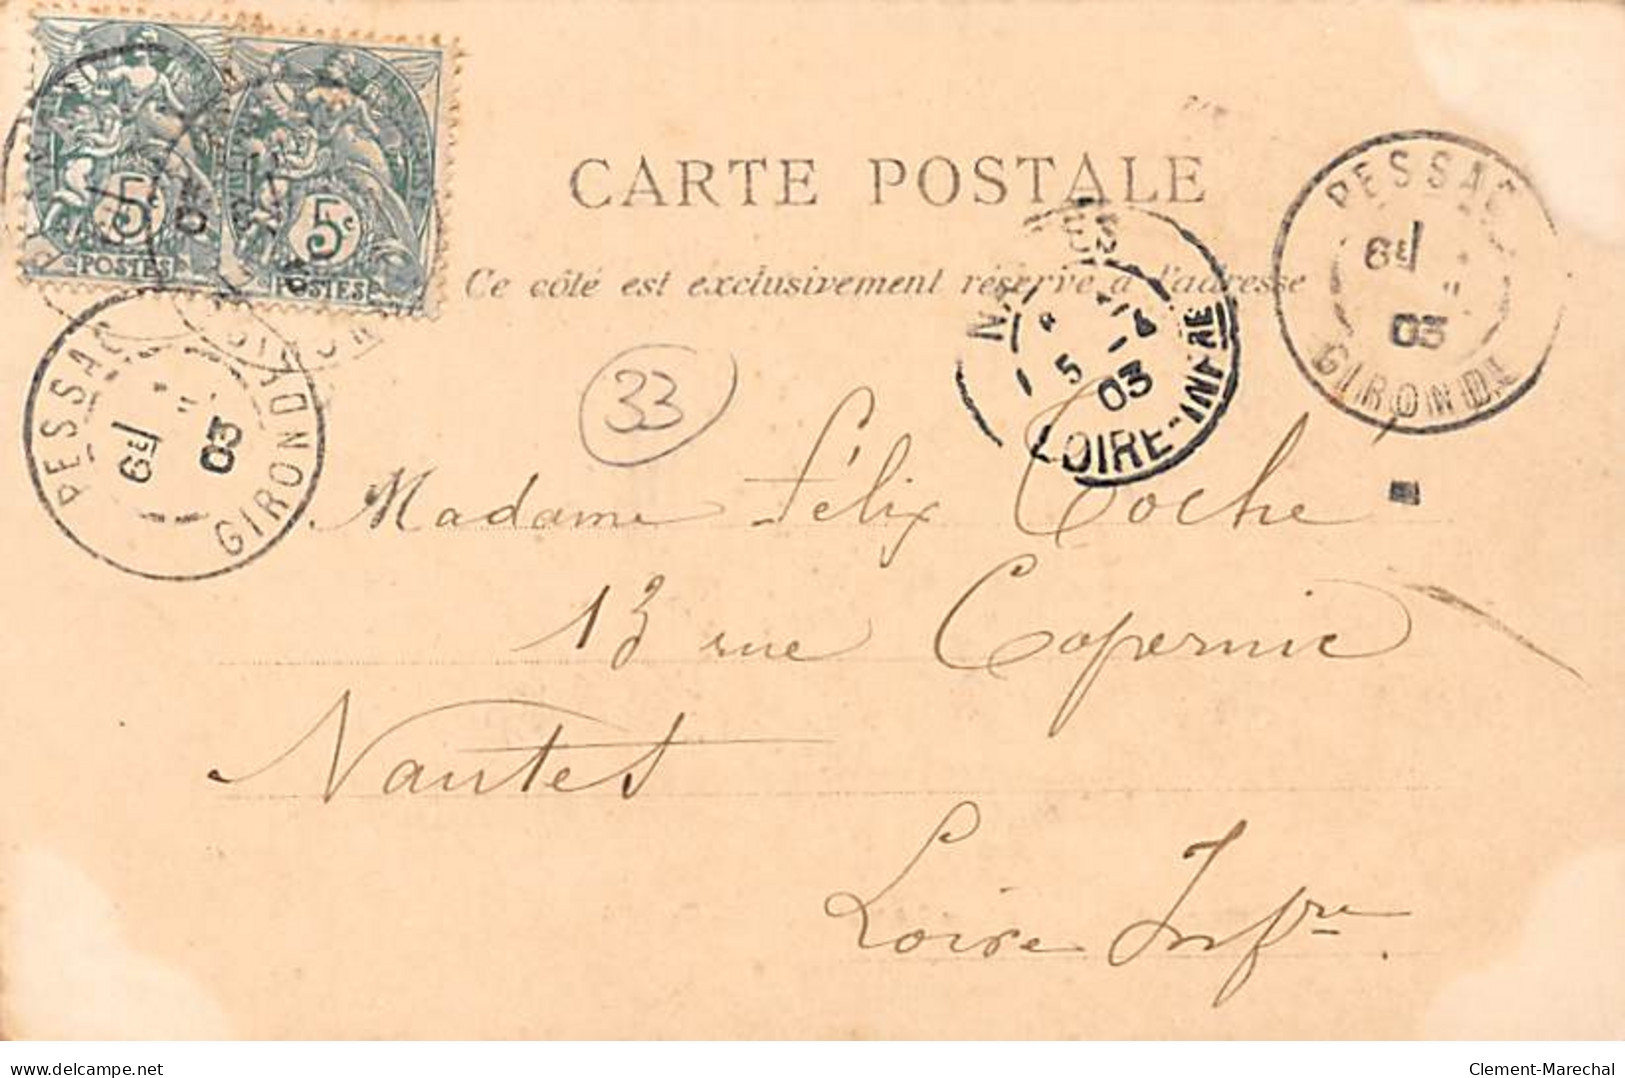 5c POSTES
5c POSTES
CARTE POSTALE
Ce côté est exclusivement réservé à l'adresse
PESSAC
6E
03
GIRONDE
NANTES
5 -4
03
LOIRE-INFRE
PESSAC
6E
03
GIRONDE
33
Madame Félix Coché
13 rue Copernic
Nantes
Loire Infre.
delcampe.net
Clement-Marechal